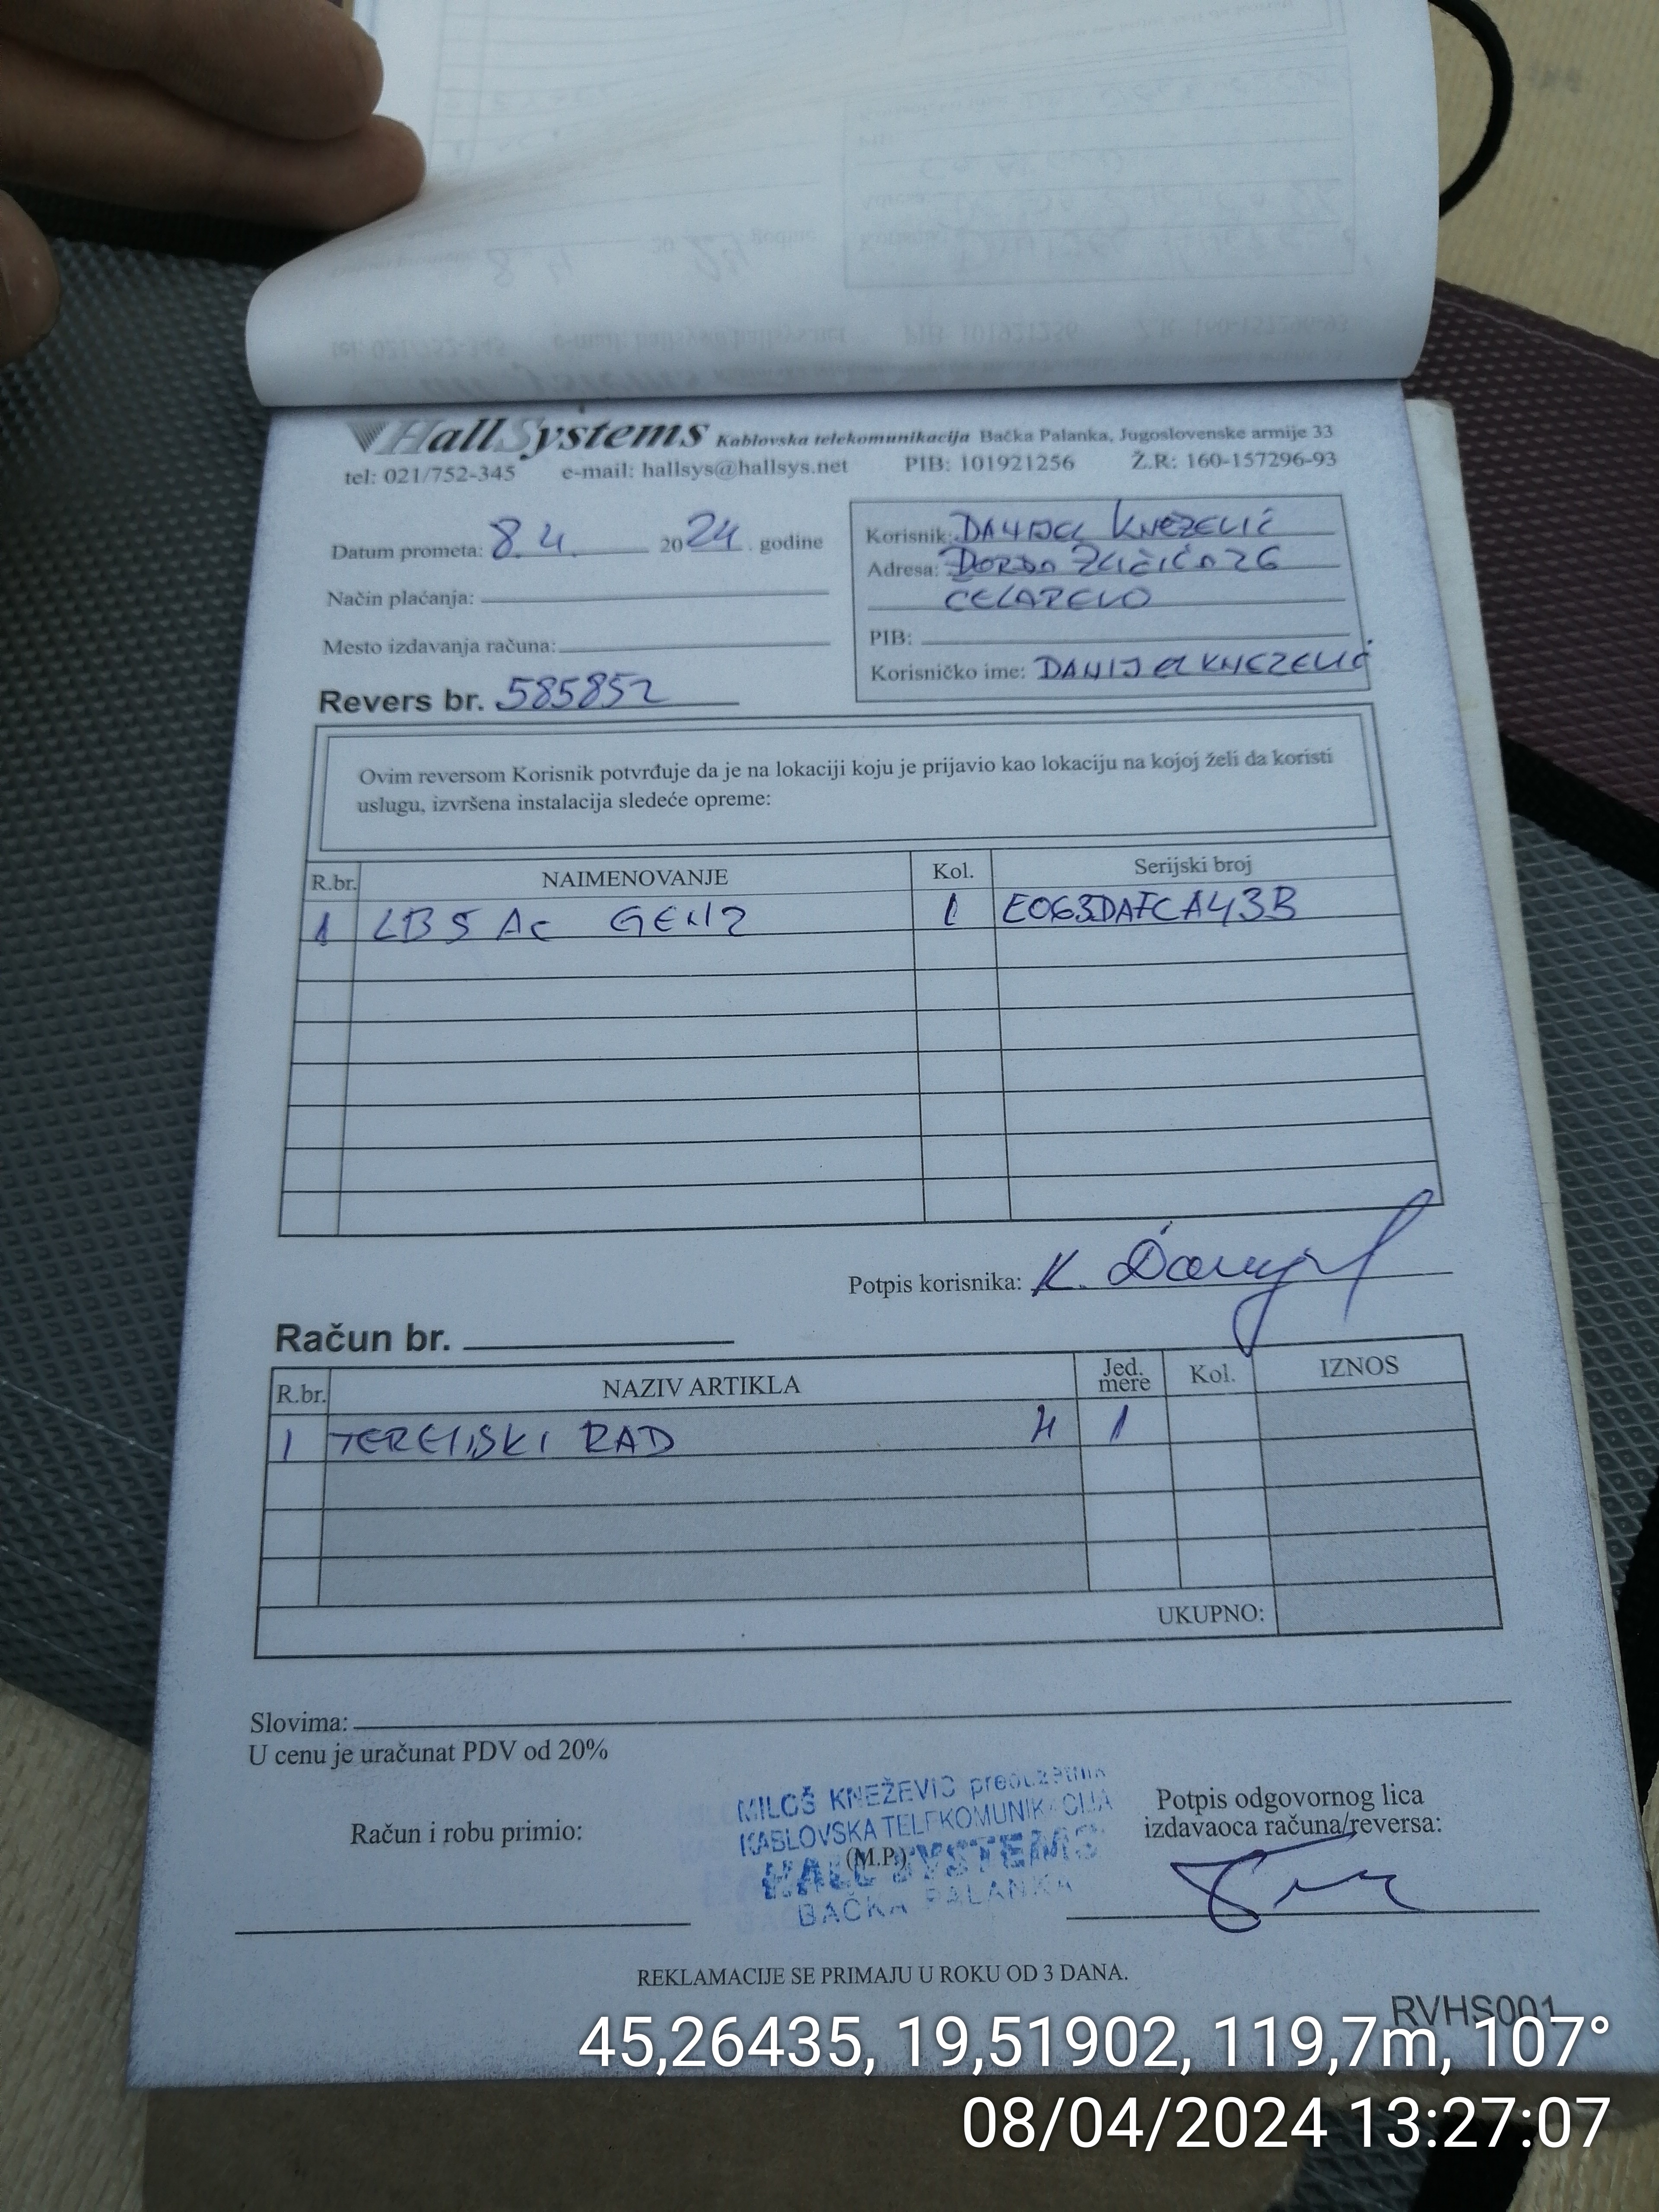 HallSystems Kablovska telekomunikacija Bačka Palanka, Jugoslovenske armije 33
tel: 021/752-345 e-mail: hallsys@hallsys.net PIB: 101921256 Ž.R: 160-157296-93
Datum prometa: 8.4. 2024. godine
Način plaćanja:
Mesto izdavanja računa:
Revers br. 585852
Korisnik: DANIJEL KNEZEVIĆ
Adresa: ĐORĐA ZLIČIĆA 26
ČELAREVO
PIB:
Korisničko ime: DANIJELKNEZEVIĆ
Ovim reversom Korisnik potvrđuje da je na lokaciji koju je prijavio kao lokaciju na kojoj želi da koristi
uslugu, izvršena instalacija sledeće opreme:
R.br. NAIMENOVANJE Kol. Serijski broj
1 LB 5 AC GEN2 1 E063DAFCA43B
Potpis korisnika: K. Danijel
Račun br.
R.br. NAZIV ARTIKLA Jed. mere Kol. IZNOS
1 TERENSKI RAD H 1
UKUPNO:
Slovima:
U cenu je uračunat PDV od 20%
MILOŠ KNEŽEVIĆ preduzetnik
KABLOVSKA TELEKOMUNIKACIJA
HALL SYSTEMS
BAČKA PALANKA
Račun i robu primio:
(M.P.)
Potpis odgovornog lica
izdavaoca računa/reversa:
REKLAMACIJE SE PRIMAJU U ROKU OD 3 DANA.
RVHS001
45,26435, 19,51902, 119,7m, 107°
08/04/2024 13:27:07